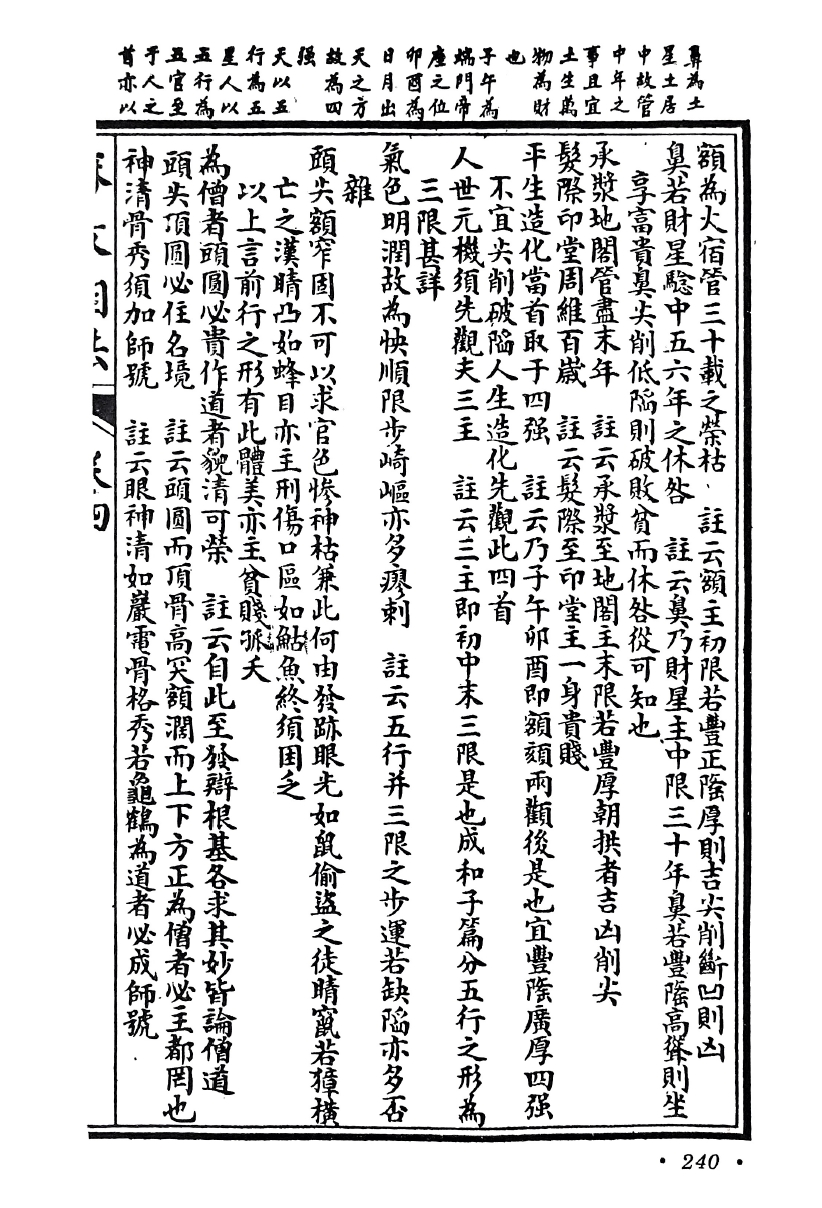 鼻為土
星土居
中故管
中年之
事且宜
土生萬
物為財
也
子午為
端門帝
座之位
卯酉為
日月出
天之方
故為四
强
天以五
行為五
星人以
五行為
五官至
于人之
首亦以
額為火宿管三十載之榮枯 註云額主初限若豐正隆厚則吉尖削斷凹則凶
鼻若財星驗中五六年之休咎 註云鼻乃財星主中限三十年鼻若豐隆高聳則坐
享富貴鼻尖削低陷則破敗貧而休咎從可知也
承漿地閣管盡末年 註云承漿至地閣主末限若豐厚朝拱者吉凶削尖
髮際印堂周維百歲 註云髮際至印堂主一身貴賤
平生造化當首取于四强 註云乃子午卯酉即額頦兩顴後是也宜豐隆廣厚四强
不宜尖削破陷人生造化先觀此四首
人世元機須先觀夫三主 註云三主即初中末三限是也成和子篇分五行之形為
三限甚詳
氣色明潤故為快順限步崎嶇亦多瘳刺 註云五行并三限之步運若缺陷亦多否
雜
頭尖額窄固不可以求官色慘神枯兼此何由發跡眼光如鼠偷盜之徒睛竄若獐橫
亡之漢睛凸如蜂目亦主刑傷口區如鮎魚終須困乏
以上言前行之形有此體美亦主貧賤孤夭
為僧者頭圓必貴作道者貌清可榮 註云自此至發辯根基各求其妙皆論僧道
頭尖頂圓必住名境 註云頭圓而頂骨高突額濶而上下方正為僧者必主都罔也
神清骨秀須加師號 註云眼神清如巖電骨格秀若龜鶴為道者必成師號
卷四
• 240 •